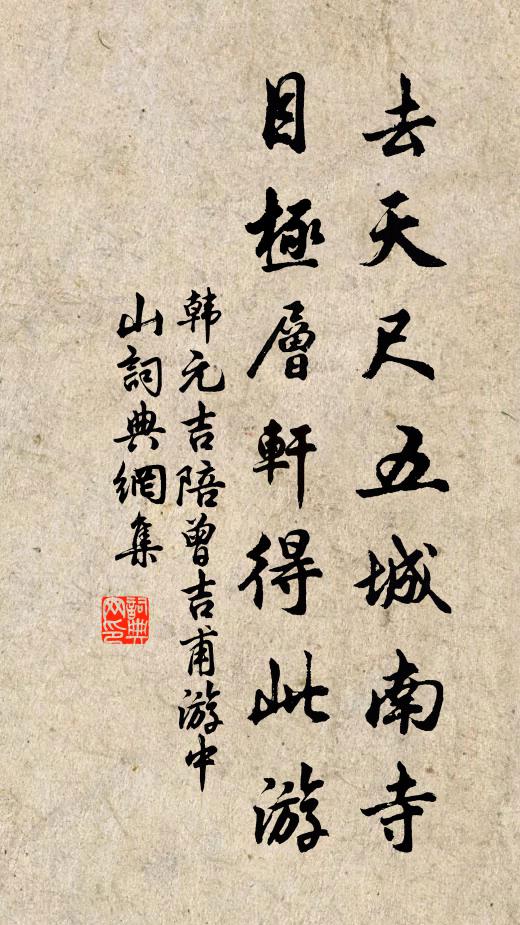 去天尺五城南寺
目極層軒得此游
韩元吉陪曾吉甫游中
山詞典網集
詞典
网印